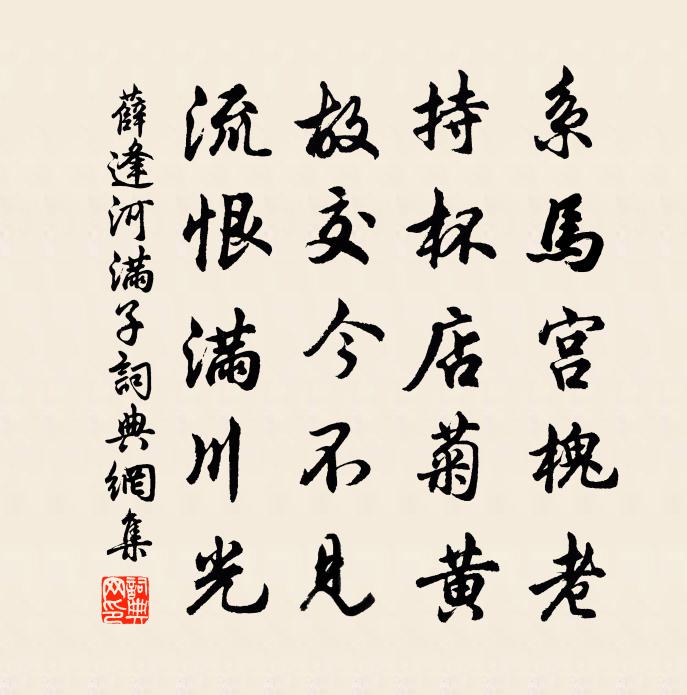 系馬宫槐老
持杯店菊黄
故交今不見
流恨滿川光
薛逢河满子詞典網集
詞典
网印